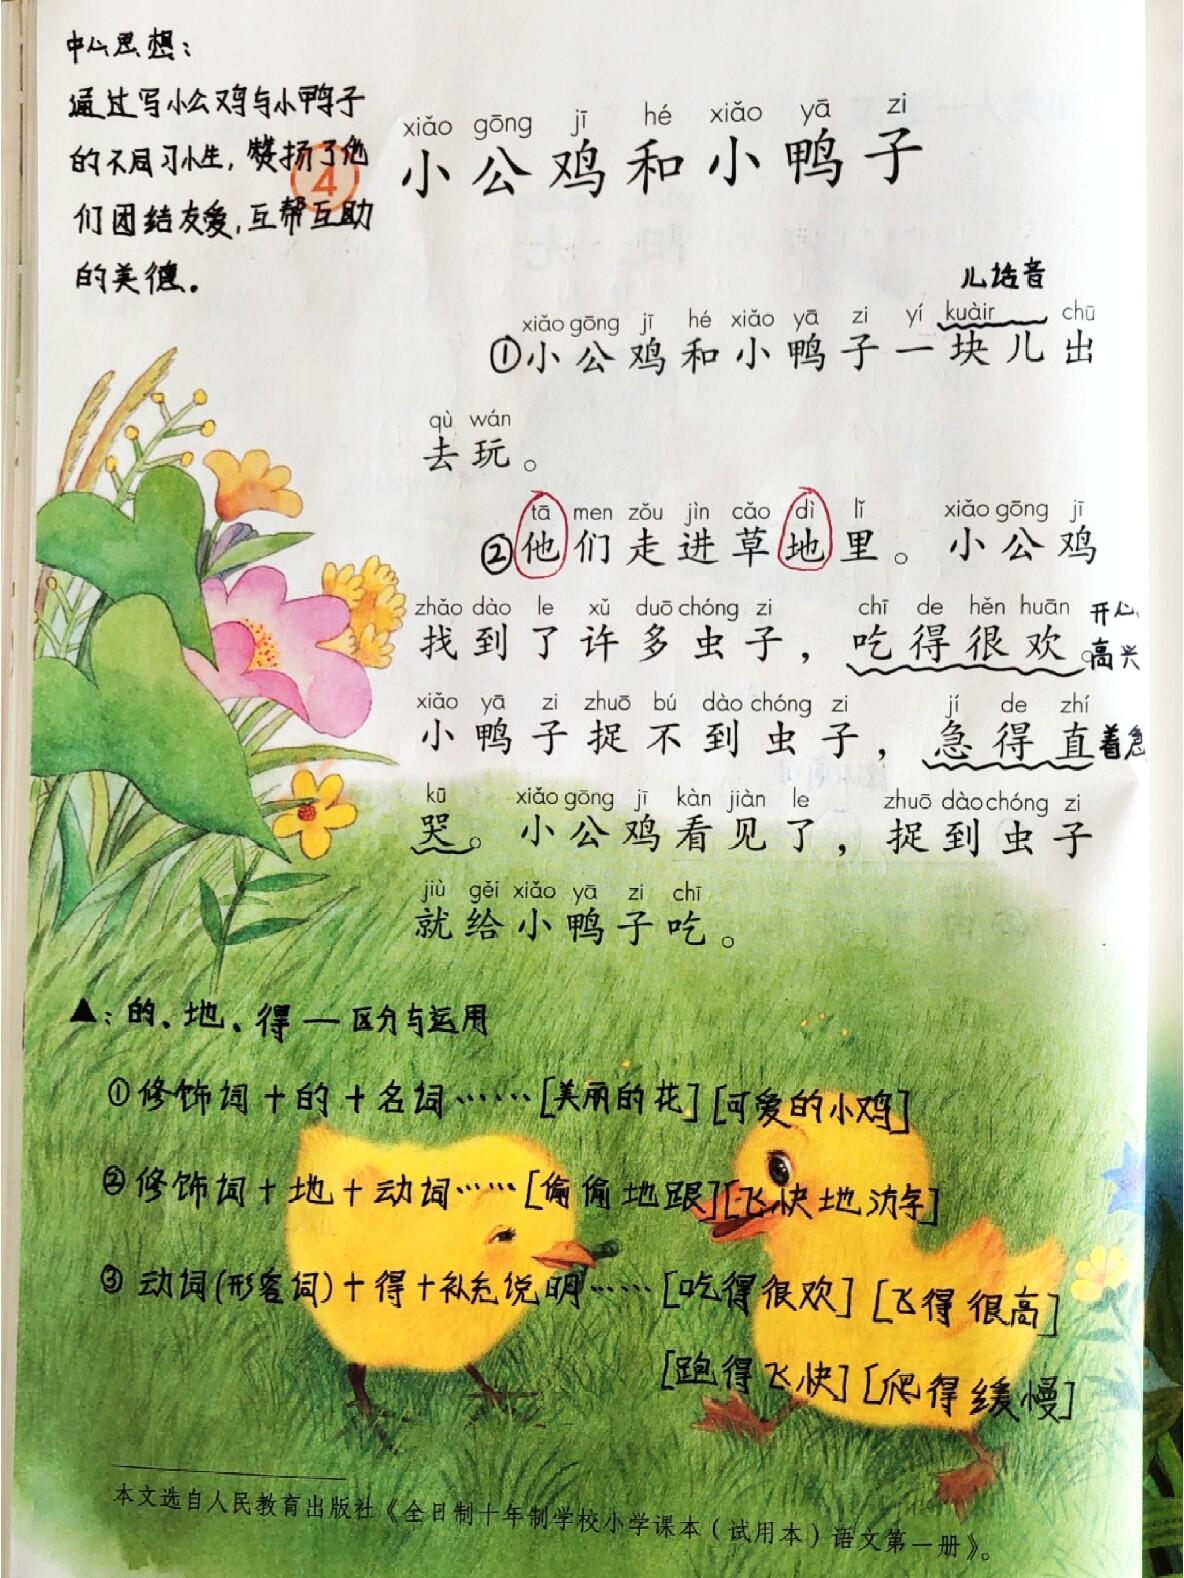 中心思想：
通过写小公鸡与小鸭子
的不同习性，赞扬了他
们团结友爱，互帮互助
的美德。
4
xiǎo gōng jī hé xiǎo yā zi
小公鸡和小鸭子
儿话音
xiǎo gōng jī hé xiǎo yā zi yí kuàir chū
①小公鸡和小鸭子一块儿出
qù wán
去玩。
tā men zǒu jìn cǎo dì lǐ xiǎo gōng jī
②他们走进草地里。小公鸡
zhǎo dào le xǔ duō chóng zi chī de hěn huān
找到了许多虫子，吃得很欢。
开心
高兴
xiǎo yā zi zhuō bú dào chóng zi jí de zhí
小鸭子捉不到虫子，急得直
着急
kū xiǎo gōng jī kàn jiàn le zhuō dào chóng zi
哭。小公鸡看见了，捉到虫子
jiù gěi xiǎo yā zi chī
就给小鸭子吃。
▲：的、地、得 — 区分与运用
①修饰词＋的＋名词……[美丽的花][可爱的小鸡]
②修饰词＋地＋动词……[偷偷地跟][飞快地游]
③动词(形容词)＋得＋补充说明……[吃得很欢][飞得很高]
[跑得飞快][爬得缓慢]
本文选自人民教育出版社《全日制十年制学校小学课本（试用本）语文第一册》。